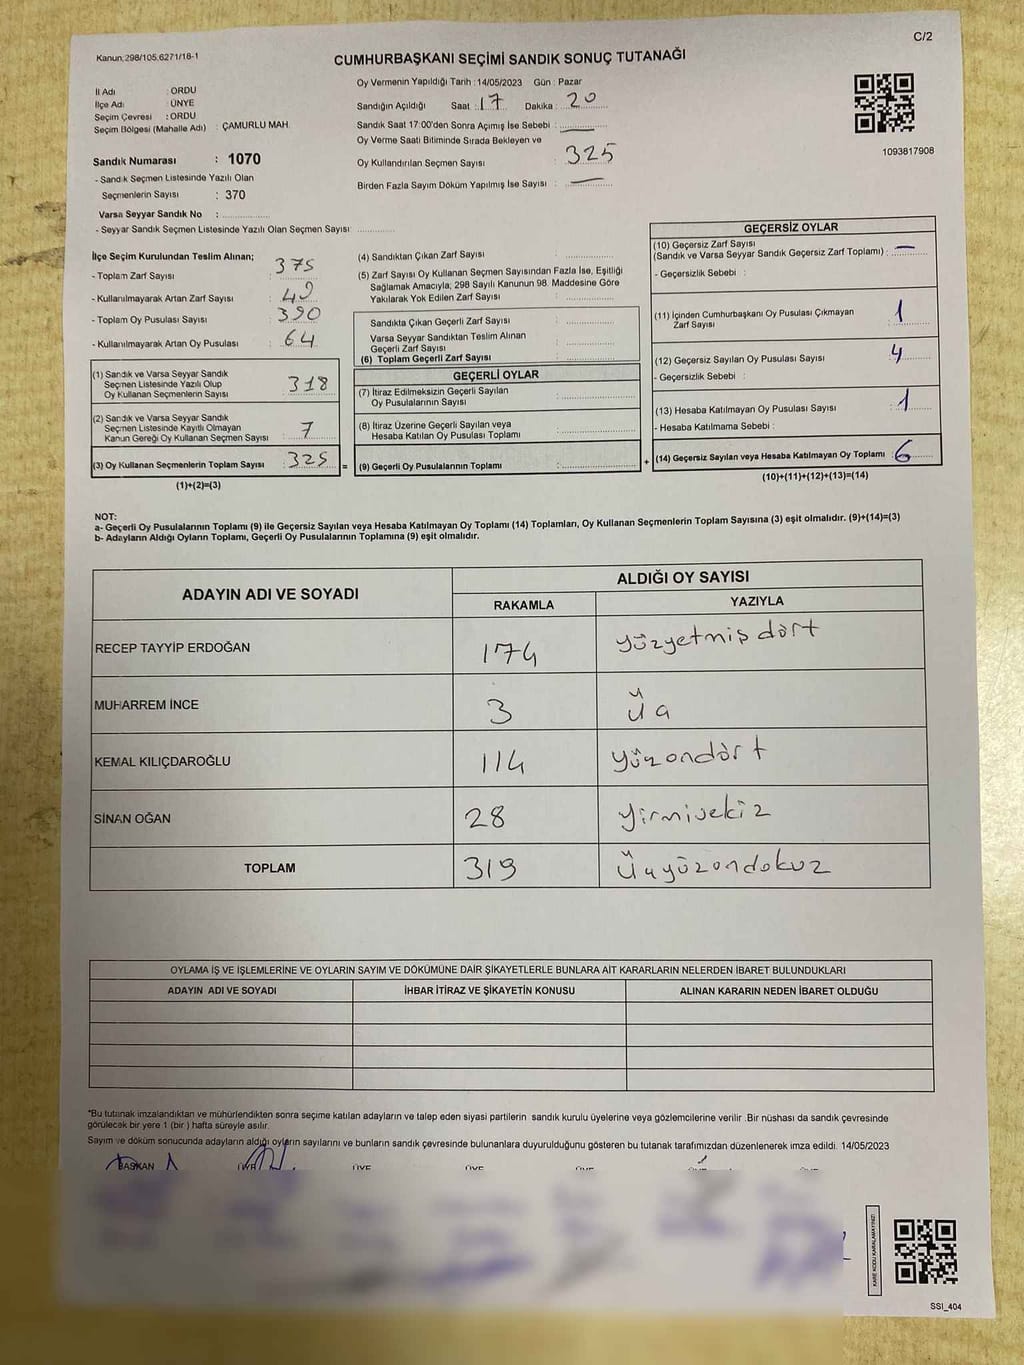 C/2
Kanun:298/105.6271/18-1
CUMHURBAŞKANI SEÇİMİ SANDIK SONUÇ TUTANAĞI
İl Adı : ORDU
İlçe Adı : ÜNYE
Seçim Çevresi : ORDU
Seçim Bölgesi (Mahalle Adı) : ÇAMURLU MAH.
Sandık Numarası : 1070
- Sandık Seçmen Listesinde Yazılı Olan
Seçmenlerin Sayısı : 370
Varsa Seyyar Sandık No :
- Seyyar Sandık Seçmen Listesinde Yazılı Olan Seçmen Sayısı:
Oy Vermenin Yapıldığı Tarih : 14/05/2023 Gün : Pazar
Sandığın Açıldığı Saat : 17 Dakika : 20
Sandık Saat 17:00'den Sonra Açımış İse Sebebi : —
Oy Verme Saati Bitiminde Sırada Bekleyen ve
Oy Kullandırılan Seçmen Sayısı : 325
Birden Fazla Sayım Döküm Yapılmış İse Sayısı : —
1093817908
İlçe Seçim Kurulundan Teslim Alınan;
- Toplam Zarf Sayısı : 375
- Kullanılmayarak Artan Zarf Sayısı : 49
- Toplam Oy Pusulası Sayısı : 390
- Kullanılmayarak Artan Oy Pusulası : 64
(1) Sandık ve Varsa Seyyar Sandık
Seçmen Listesinde Yazılı Olup
Oy Kullanan Seçmenlerin Sayısı : 318
(2) Sandık ve Varsa Seyyar Sandık
Seçmen Listesinde Kayıtlı Olmayan
Kanun Gereği Oy Kullanan Seçmen Sayısı : 7
(3) Oy Kullanan Seçmenlerin Toplam Sayısı : 325 =
(1)+(2)=(3)
(4) Sandıktan Çıkan Zarf Sayısı :
(5) Zarf Sayısı Oy Kullanan Seçmen Sayısından Fazla İse, Eşitliği
Sağlamak Amacıyla, 298 Sayılı Kanunun 98. Maddesine Göre
Yakılarak Yok Edilen Zarf Sayısı :
Sandıkta Çıkan Geçerli Zarf Sayısı :
Varsa Seyyar Sandıktan Teslim Alınan
Geçerli Zarf Sayısı :
(6) Toplam Geçerli Zarf Sayısı :
GEÇERLİ OYLAR
(7) İtiraz Edilmeksizin Geçerli Sayılan
Oy Pusulalarının Sayısı :
(8) İtiraz Üzerine Geçerli Sayılan veya
Hesaba Katılan Oy Pusulası Toplamı :
(9) Geçerli Oy Pusulalarının Toplamı : +
GEÇERSİZ OYLAR
(10) Geçersiz Zarf Sayısı
(Sandık ve Varsa Seyyar Sandık Geçersiz Zarf Toplamı) : —
- Geçersizlik Sebebi :
(11) İçinden Cumhurbaşkanı Oy Pusulası Çıkmayan
Zarf Sayısı : 1
(12) Geçersiz Sayılan Oy Pusulası Sayısı : 4
- Geçersizlik Sebebi :
(13) Hesaba Katılmayan Oy Pusulası Sayısı : 1
- Hesaba Katılmama Sebebi :
(14) Geçersiz Sayılan veya Hesaba Katılmayan Oy Toplamı : 6
(10)+(11)+(12)+(13)=(14)
NOT:
a- Geçerli Oy Pusulalarının Toplamı (9) ile Geçersiz Sayılan veya Hesaba Katılmayan Oy Toplamı (14) Toplamları, Oy Kullanan Seçmenlerin Toplam Sayısına (3) eşit olmalıdır. (9)+(14)=(3)
b- Adayların Aldığı Oyların Toplamı, Geçerli Oy Pusulalarının Toplamına (9) eşit olmalıdır.
ADAYIN ADI VE SOYADI ALDIĞI OY SAYISI
RAKAMLA YAZIYLA
RECEP TAYYİP ERDOĞAN 174 yüzyetmiş dört
MUHARREM İNCE 3 üç
KEMAL KILIÇDAROĞLU 114 yüzondört
SİNAN OĞAN 28 yirmisekiz
TOPLAM 319 Üçyüzondokuz
OYLAMA İŞ VE İŞLEMLERİNE VE OYLARIN SAYIM VE DÖKÜMÜNE DAİR ŞİKAYETLERLE BUNLARA AİT KARARLARIN NELERDEN İBARET BULUNDUKLARI
ADAYIN ADI VE SOYADI İHBAR İTİRAZ VE ŞİKAYETİN KONUSU ALINAN KARARIN NEDEN İBARET OLDUĞU
*Bu tutanak imzalandıktan ve mühürlendikten sonra seçime katılan adayların ve talep eden siyasi partilerin sandık kurulu üyelerine veya gözlemcilerine verilir .Bir nüshası da sandık çevresinde
görülecek bir yere 1 (bir ) hafta süreyle asılır.
Sayım ve döküm sonucunda adayların aldığı oyların sayılarını ve bunların sandık çevresinde bulunanlara duyurulduğunu gösteren bu tutanak tarafımızdan düzenlenerek imza edildi. 14/05/2023
BAŞKAN ÜYE ÜYE ÜYE ÜYE ÜYE ÜYE
KARE KODU KARALAMAYINIZ!
SSI_404